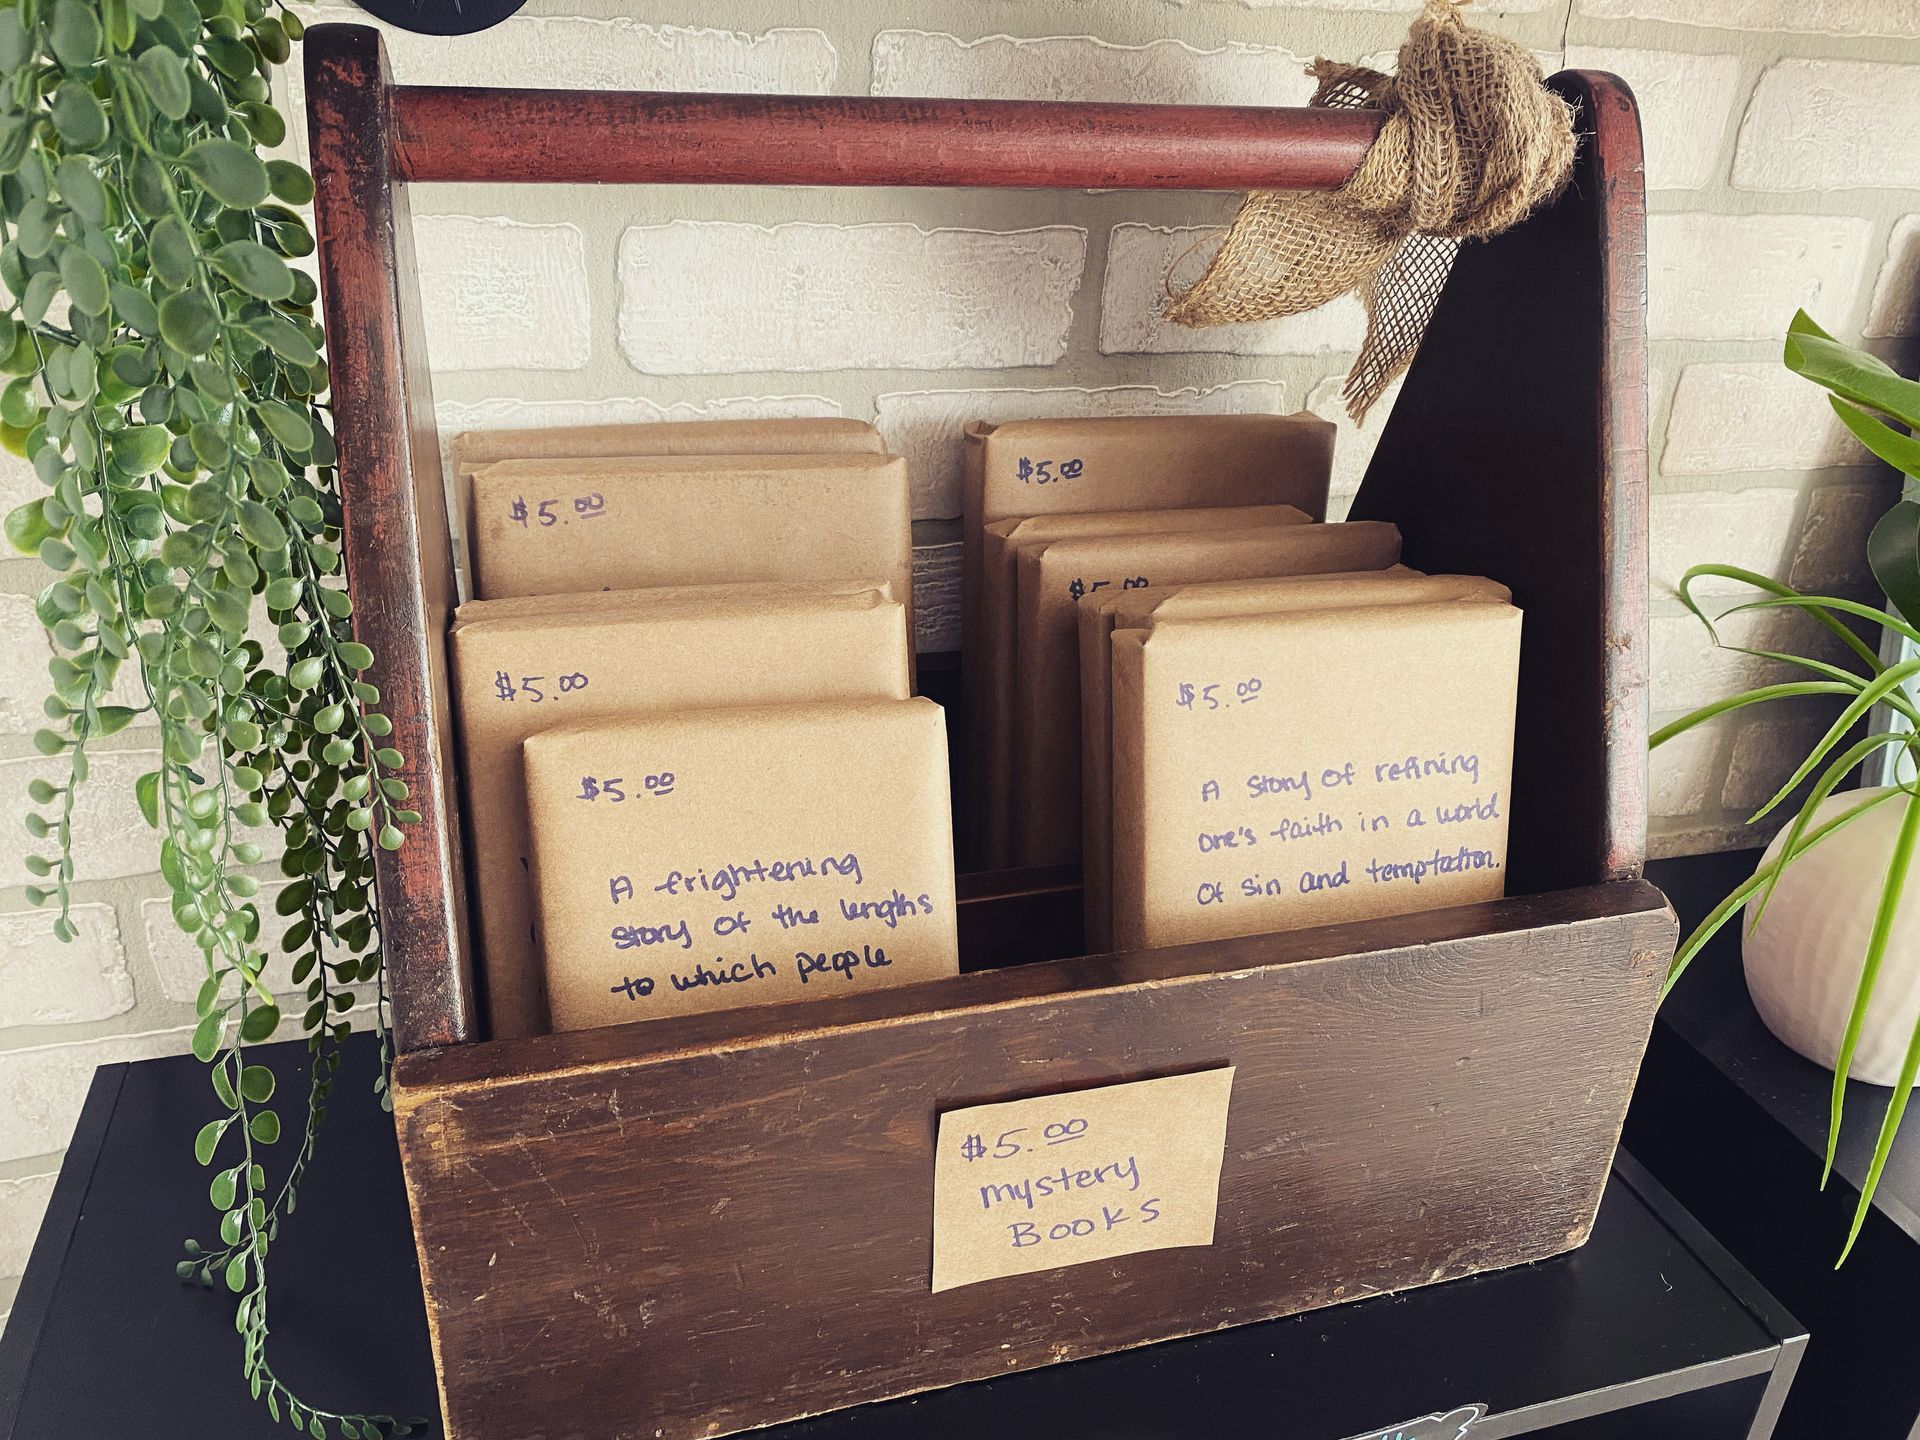 $5.00
$5.00
$5.00
$5.00
$5.00
A frightening
story of the lengths
to which people
$5.00
A story of refining
one's faith in a world
of sin and temptation.
$5.00
mystery
Books